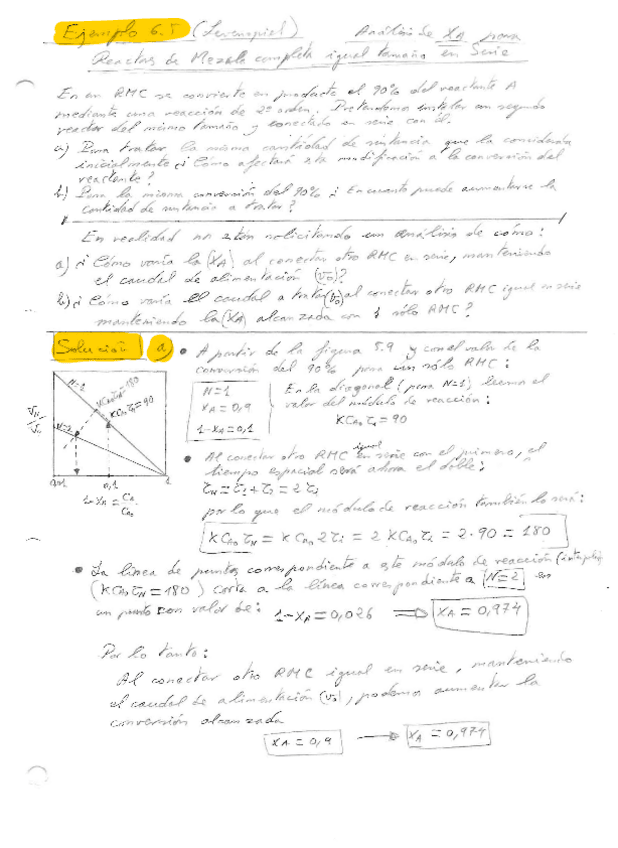 Ejemplo 6.5 (Levenspiel) Análisis de XA para
Reactores de Mezcla completa igual tamaño en Serie
En un RMC se convierte en producto el 90% del reactante A
mediante una reacción de 2º orden. Pretendemos instalar un segundo
reactor del mismo tamaño y conectado en serie con él.
a) Para tratar la misma cantidad de sustancia que la considerada
inicialmente ¿Cómo afectará esta modificación a la conversión del
reactante?
b) Para la misma conversión del 90% ¿En cuanto puede aumentarse la
cantidad de sustancia a tratar?
En realidad nos están solicitando un análisis de cómo:
a) ¿Cómo varía la (XA) al conectar otro RMC en serie, manteniendo
el caudal de alimentación (v0)?
b) ¿Cómo varía el caudal a tratar (v0) al conectar otro RMC igual en serie
manteniendo la (XA) alcanzada con 1 sólo RMC?
Solución a) • A partir de la figura 5.9 y con el valor de la
conversión del 90% para un sólo RMC:
N=1
XA = 0,9
1-XA = 0,1
En la diagonal (para N=1) leemos el
valor del módulo de reacción:
KCA0 τi = 90
N=1
N=2
KCA0 τN=180
KCA0 τi=90
0,1
1
1-XA = CA/CA0
• Al conectar otro RMC igual en serie con el primero, el
tiempo espacial será ahora el doble:
τN = τ1 + τ2 = 2τi
por lo que el módulo de reacción también lo será:
KCA0 τN = KCA0 2τi = 2 KCA0 τi = 2·90 = 180
• La línea de puntos correspondiente a este módulo de reacción
(KCA0 τN = 180) corta a la línea correspondiente a N=2 en
un punto con valor de: 1-XA = 0,026 ⟹ XA = 0,974
Por lo tanto:
Al conectar otro RMC igual en serie, manteniendo
el caudal de alimentación (v0), podemos aumentar la
conversión alcanzada
XA = 0,9 → XA = 0,974